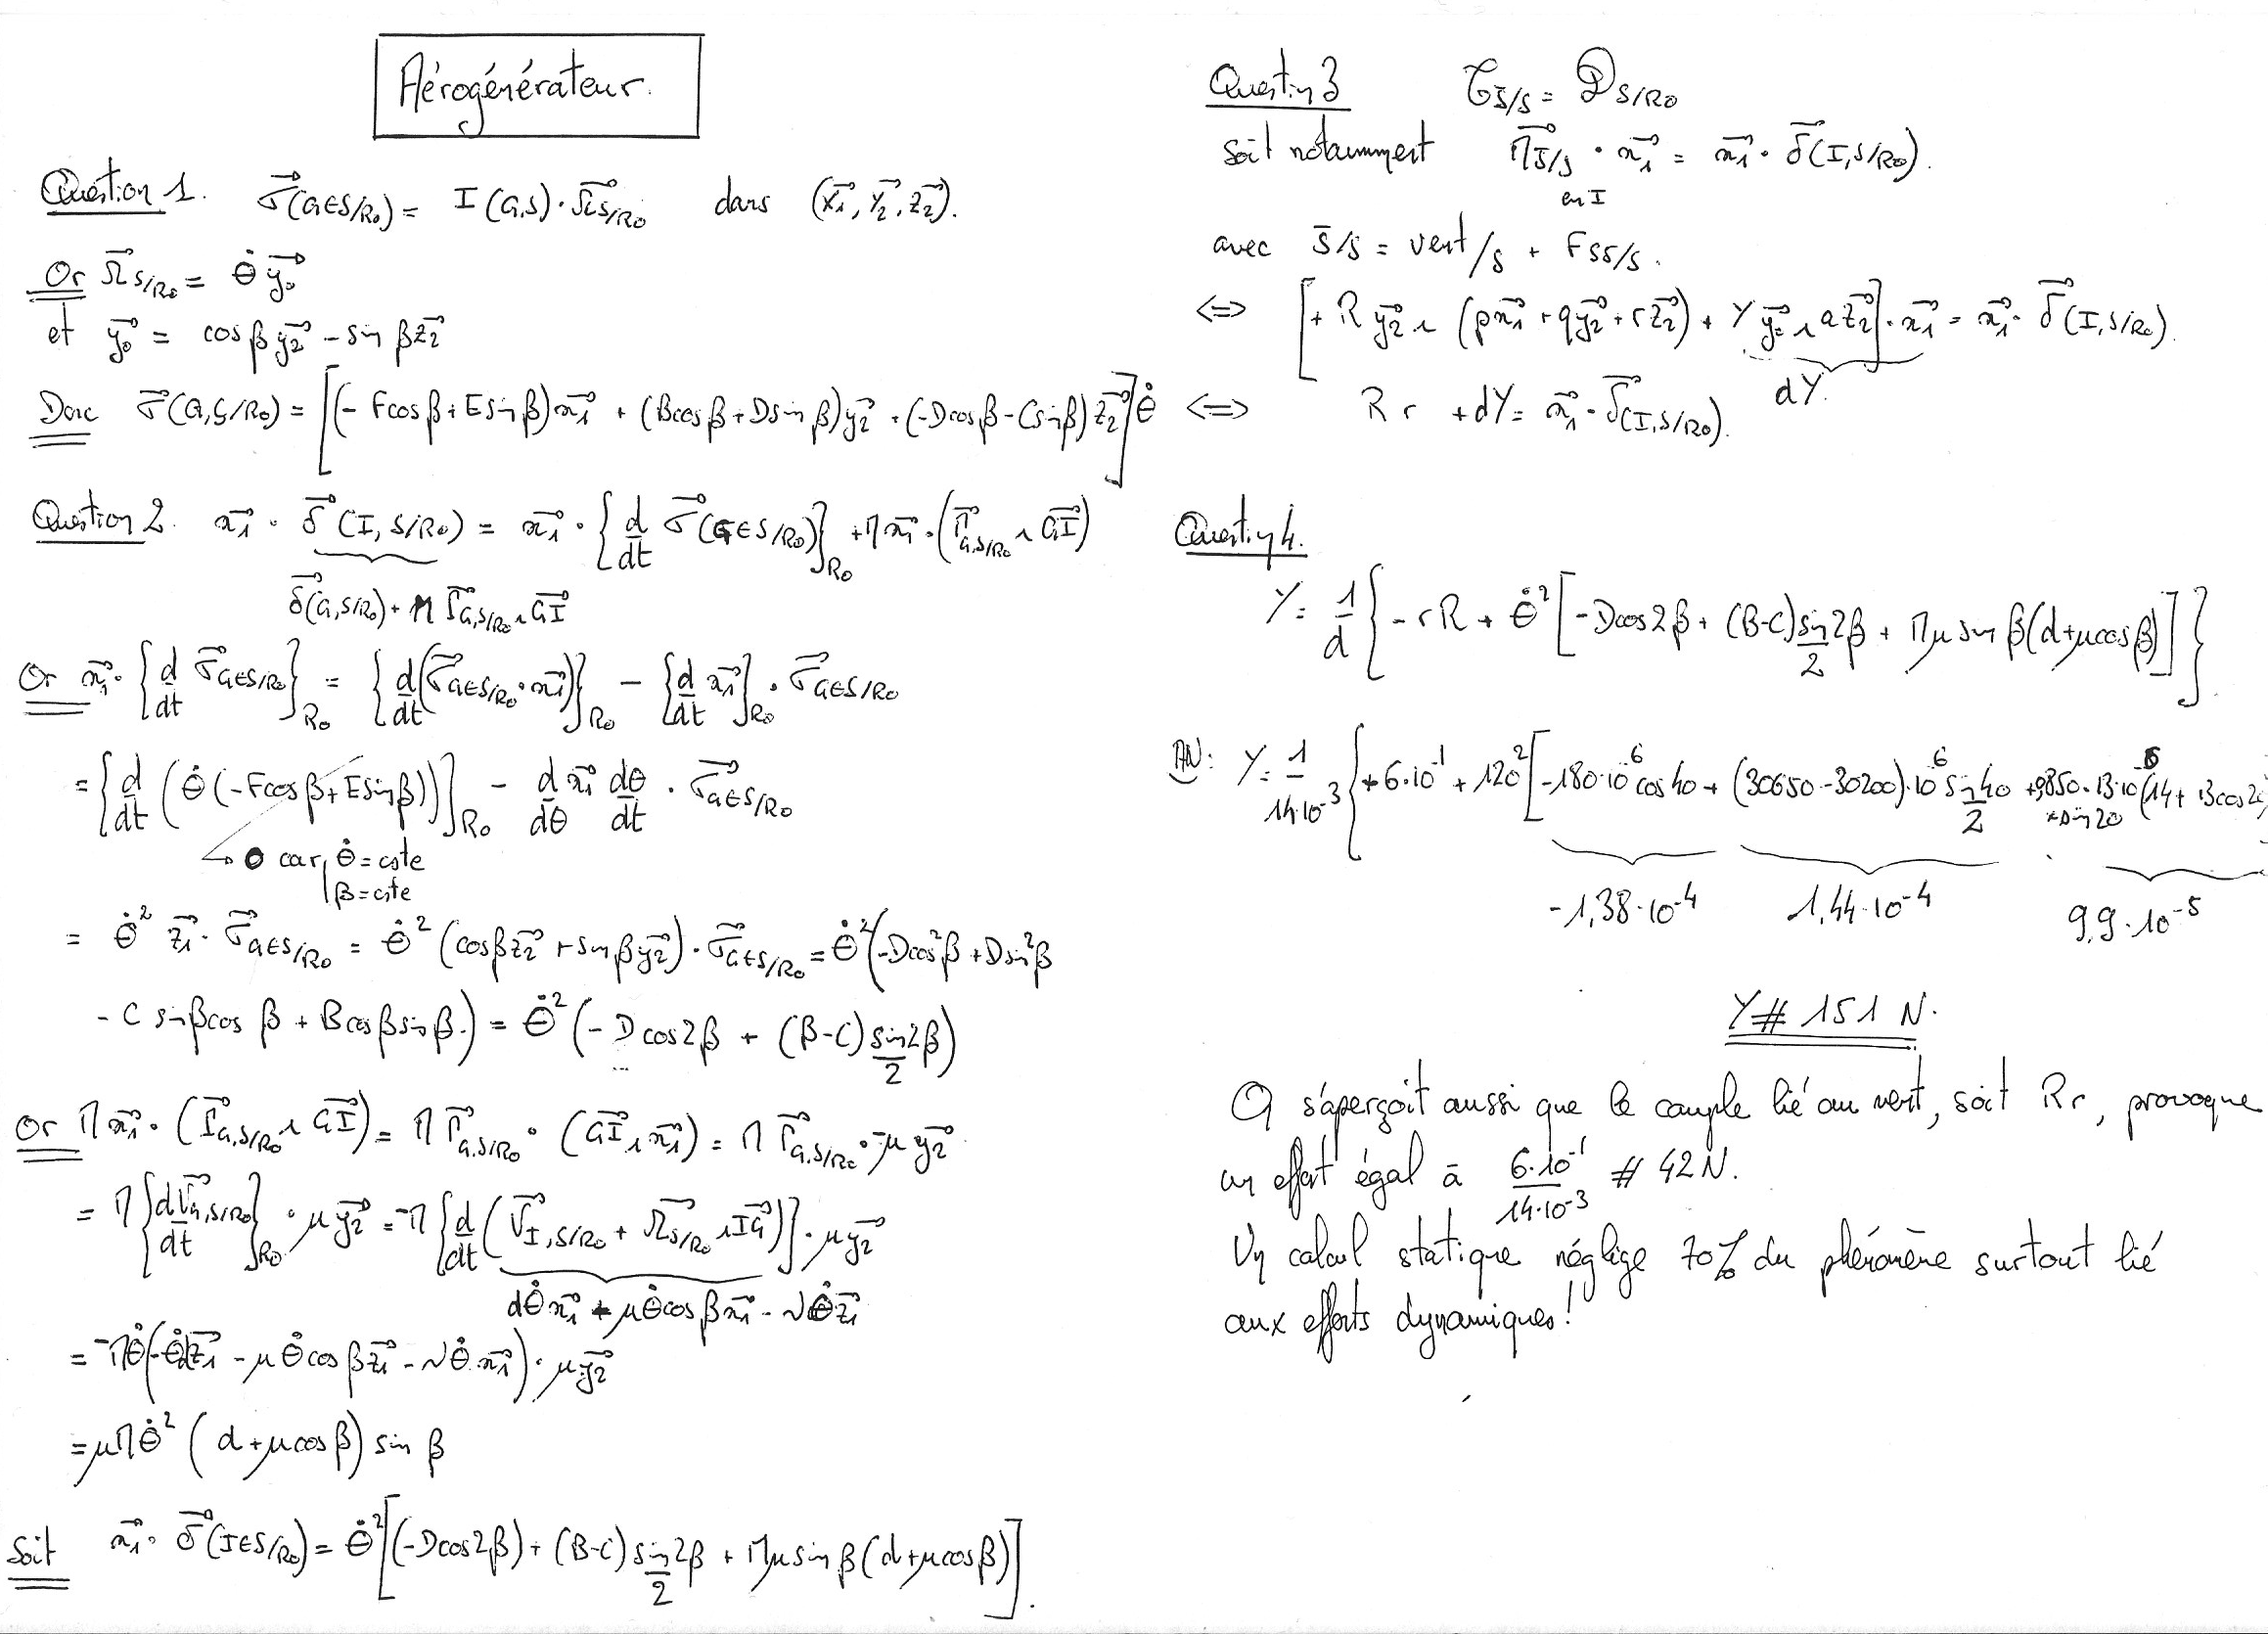 Aérogénérateur.
Question 1. σ⃗(G∈S/R₀) = I(G,S)·Ω⃗S/R₀ dans (x⃗₁, y⃗₂, z⃗₂).
Or Ω⃗S/R₀ = θ̇ y⃗₀
et y⃗₀ = cosβ y⃗₂ - sinβ z⃗₂
Donc σ⃗(G,S/R₀) = [(-Fcosβ+Esinβ)x⃗₁ + (Bcosβ+Dsinβ)y⃗₂ + (-Dcosβ-Csinβ)z⃗₂]θ̇
Question 2. x⃗₁ · δ⃗(I,S/R₀) = x⃗₁ · {d/dt σ⃗(G∈S/R₀)}R₀ + M x⃗₁·(Γ⃗G,S/R₀ ∧ GI⃗)
δ⃗(G,S/R₀) + M Γ⃗G,S/R₀ ∧ GI⃗
Or x⃗₁·{d/dt σ⃗G∈S/R₀}R₀ = {d/dt(σ⃗G∈S/R₀·x⃗₁)}R₀ - {d/dt x⃗₁}R₀ · σ⃗G∈S/R₀
= {d/dt (θ̇(-Fcosβ+Esinβ))}R₀ - d/dθ x⃗₁ dθ/dt · σ⃗G∈S/R₀
↳ 0 car θ̇ = cste
β = cste
= θ̇² z⃗₁·σ⃗G∈S/R₀ = θ̇²(cosβ z⃗₂ + sinβ y⃗₂)·σ⃗G∈S/R₀ = θ̇²(-Dcos²β + Dsin²β
- C sinβcosβ + Bcosβsinβ) = θ̇²(-Dcos2β + (B-C) sin2β/2)
Or M x⃗₁·(Γ⃗G,S/R₀ ∧ GI⃗) = M Γ⃗G,S/R₀·(GI⃗ ∧ x⃗₁) = M Γ⃗G,S/R₀·-μ y⃗₂
= M{dV⃗G,S/R₀/dt}R₀·μ y⃗₂ = -M{d/dt(V⃗I,S/R₀ + Ω⃗S/R₀ ∧ IG⃗)}·μ y⃗₂
dθ̇ x⃗₁ + μθ̇cosβ x⃗₁ - νθ̇ z⃗₁
= -Mθ̇(-θ̇d z⃗₁ - μθ̇cosβ z⃗₁ - νθ̇ x⃗₁)·μ y⃗₂
= μMθ̇² (d + μcosβ) sinβ
Soit x⃗₁·δ⃗(I∈S/R₀) = θ̇²[(-Dcos2β) + (B-C) sin2β/2 + Mμsinβ(d+μcosβ)].
Question 3 𝒯S̄/S = 𝒟S/R₀
soit notamment M⃗S̄/S · x⃗₁ = x⃗₁·δ⃗(I,S/R₀).
en I
avec S̄/S = vent/S + FSS/S.
⇔ [+R y⃗₂ ∧ (p x⃗₁ + q y⃗₂ + r z⃗₂) + Y y⃗₀ ∧ a z⃗₂]·x⃗₁ = x⃗₁·δ⃗(I,S/R₀).
dY.
⇔ R r + dY = x⃗₁·δ⃗(I,S/R₀).
Question 4.
Y = 1/d {-rR + θ̇²[-Dcos2β + (B-C) sin2β/2 + Mμ sinβ(d+μcosβ)]}
AN: Y = 1/14·10⁻³ {+6·10⁻¹ + 120²[-180·10⁻⁶cos40 + (30650-30200)·10⁻⁶ sin40/2 + 9850·13·10⁻⁶(14 + 13cos20
×sin20
-1,38·10⁻⁴ 1,44·10⁻⁴ 9,9·10⁻⁵
Y # 151 N.
On s'aperçoit aussi que le couple lié au vent, soit Rr, provoque
un effort égal à 6·10⁻¹/14·10⁻³ # 42N.
Un calcul statique néglige 70% du phénomène surtout lié
aux efforts dynamiques!